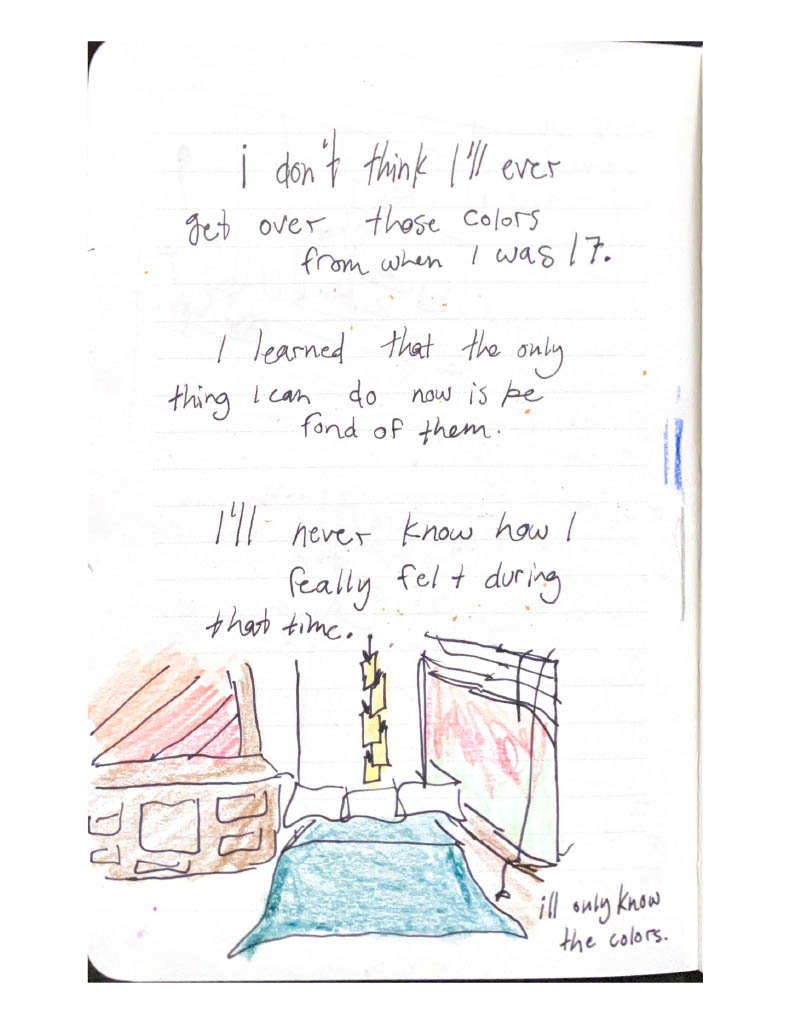 i don't think I'll ever
get over those colors
from when I was 17.
I learned that the only
thing I can do now is be
fond of them.
I'll never know how I
really felt during
that time.
ill only know
the colors.